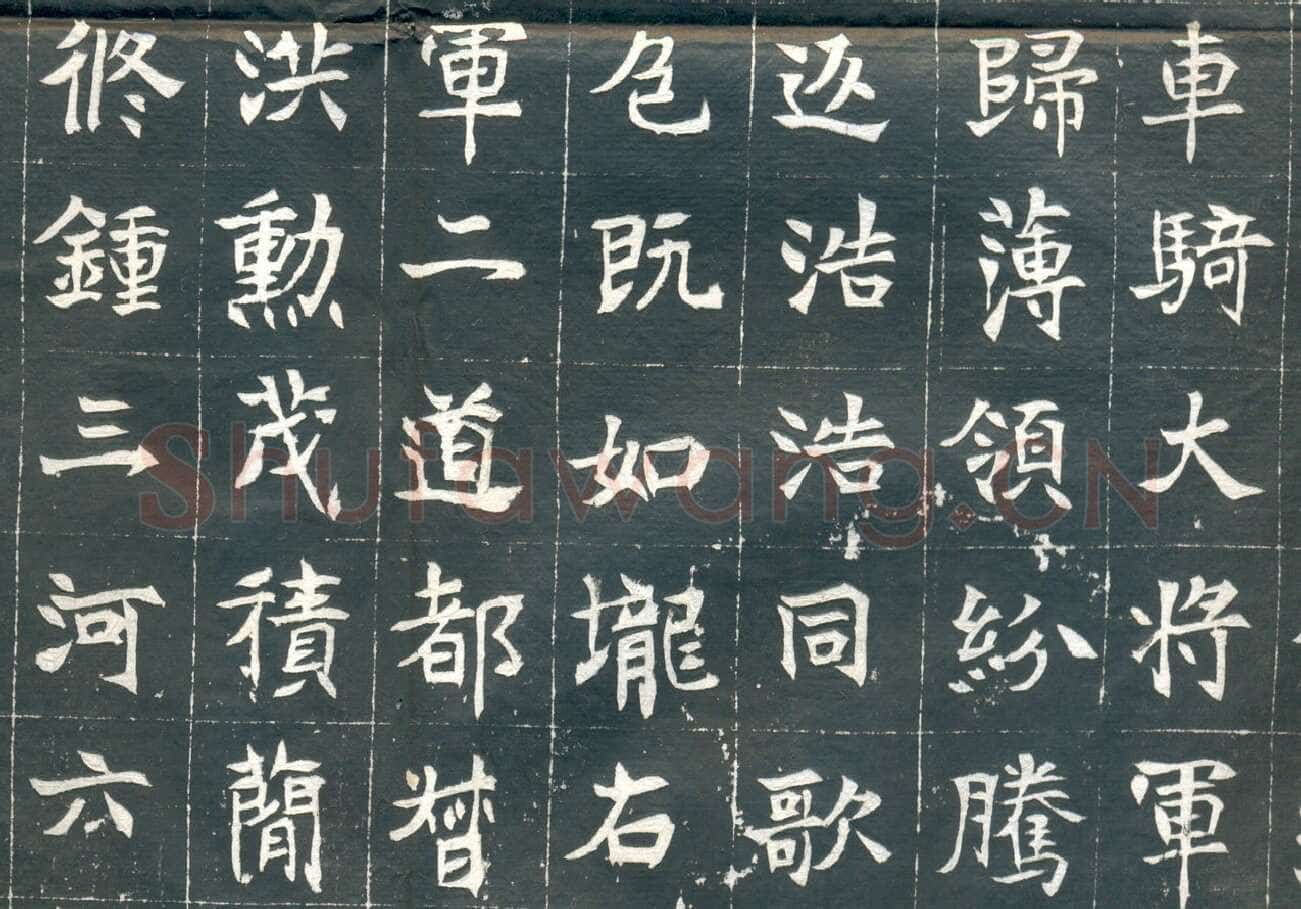 車騎大將軍
歸薄領紛騰
返浩浩同歌
邑既如壠右
軍二道都督
洪勳茂積簡
終鍾三河六
Shufawang.CN